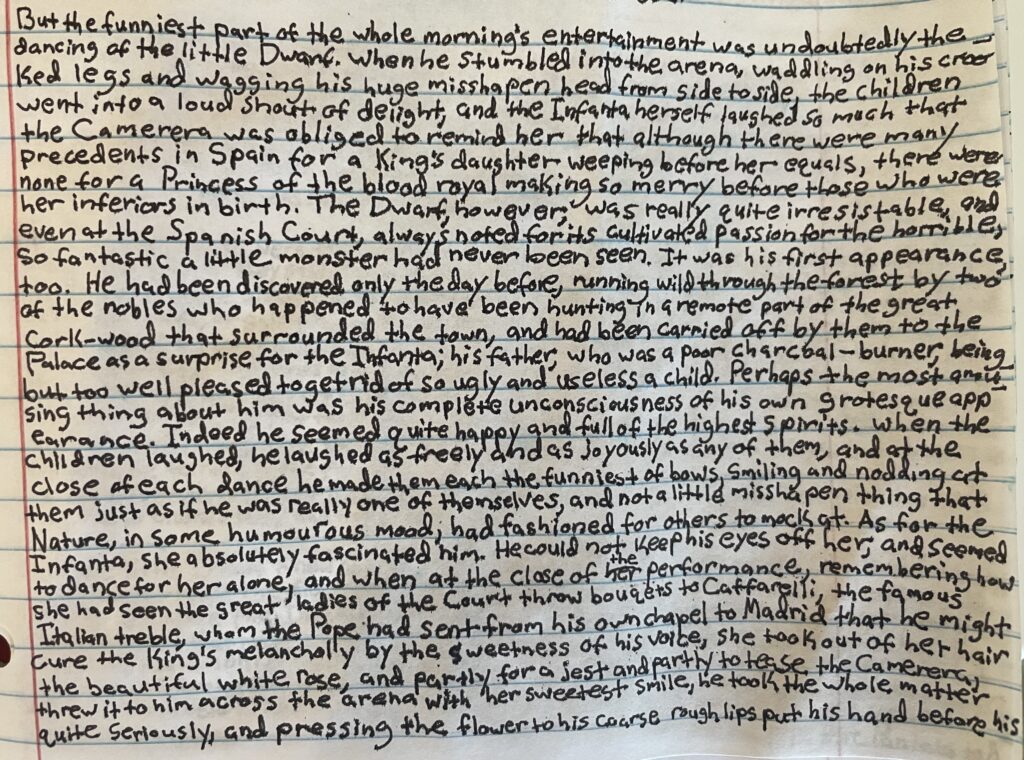 But the funniest part of the whole morning's entertainment was undoubtedly the
dancing of the little Dwarf. When he stumbled into the arena, waddling on his croo-
ked legs and wagging his huge misshapen head from side to side, the children
went into a loud shout of delight, and the Infanta herself laughed so much that
the Camerera was obliged to remind her that although there were many
precedents in Spain for a King's daughter weeping before her equals, there were
none for a Princess of the blood royal making so merry before those who were
her inferiors in birth. The Dwarf, however, was really quite irresistable, and
even at the Spanish Court, always noted for its cultivated passion for the horrible,
so fantastic a little monster had never been seen. It was his first appearance,
too. He had been discovered only the day before, running wild through the forest by two
of the nobles who happened to have been hunting in a remote part of the great
Cork-wood that surrounded the town, and had been carried off by them to the
Palace as a surprise for the Infanta; his father, who was a poor charcoal-burner, being
but too well pleased to get rid of so ugly and useless a child. Perhaps the most amu-
sing thing about him was his complete unconsciousness of his own grotesque app-
earance. Indeed he seemed quite happy and full of the highest spirits. When the
children laughed, he laughed as freely and as joyously as any of them, and at the
close of each dance he made them each the funniest of bows, smiling and nodding at
them just as if he was really one of themselves, and not a little misshapen thing that
Nature, in some humourous mood, had fashioned for others to mock at. As for the
Infanta, she absolutely fascinated him. He could not keep his eyes off her, and seemed
to dance for her alone, and when at the close of the performance, remembering how
she had seen the great ladies of the Court throw bouqets to Caffarelli, the famous
Italian treble, whom the Pope had sent from his own chapel to Madrid that he might
cure the King's melancholly by the sweetness of his voice, she took out of her hair
the beautiful white rose, and partly for a jest and partly to tease the Camerera,
threw it to him across the arena with her sweetest smile, he took the whole matter
quite seriously, and pressing the flower to his coarse rough lips put his hand before his